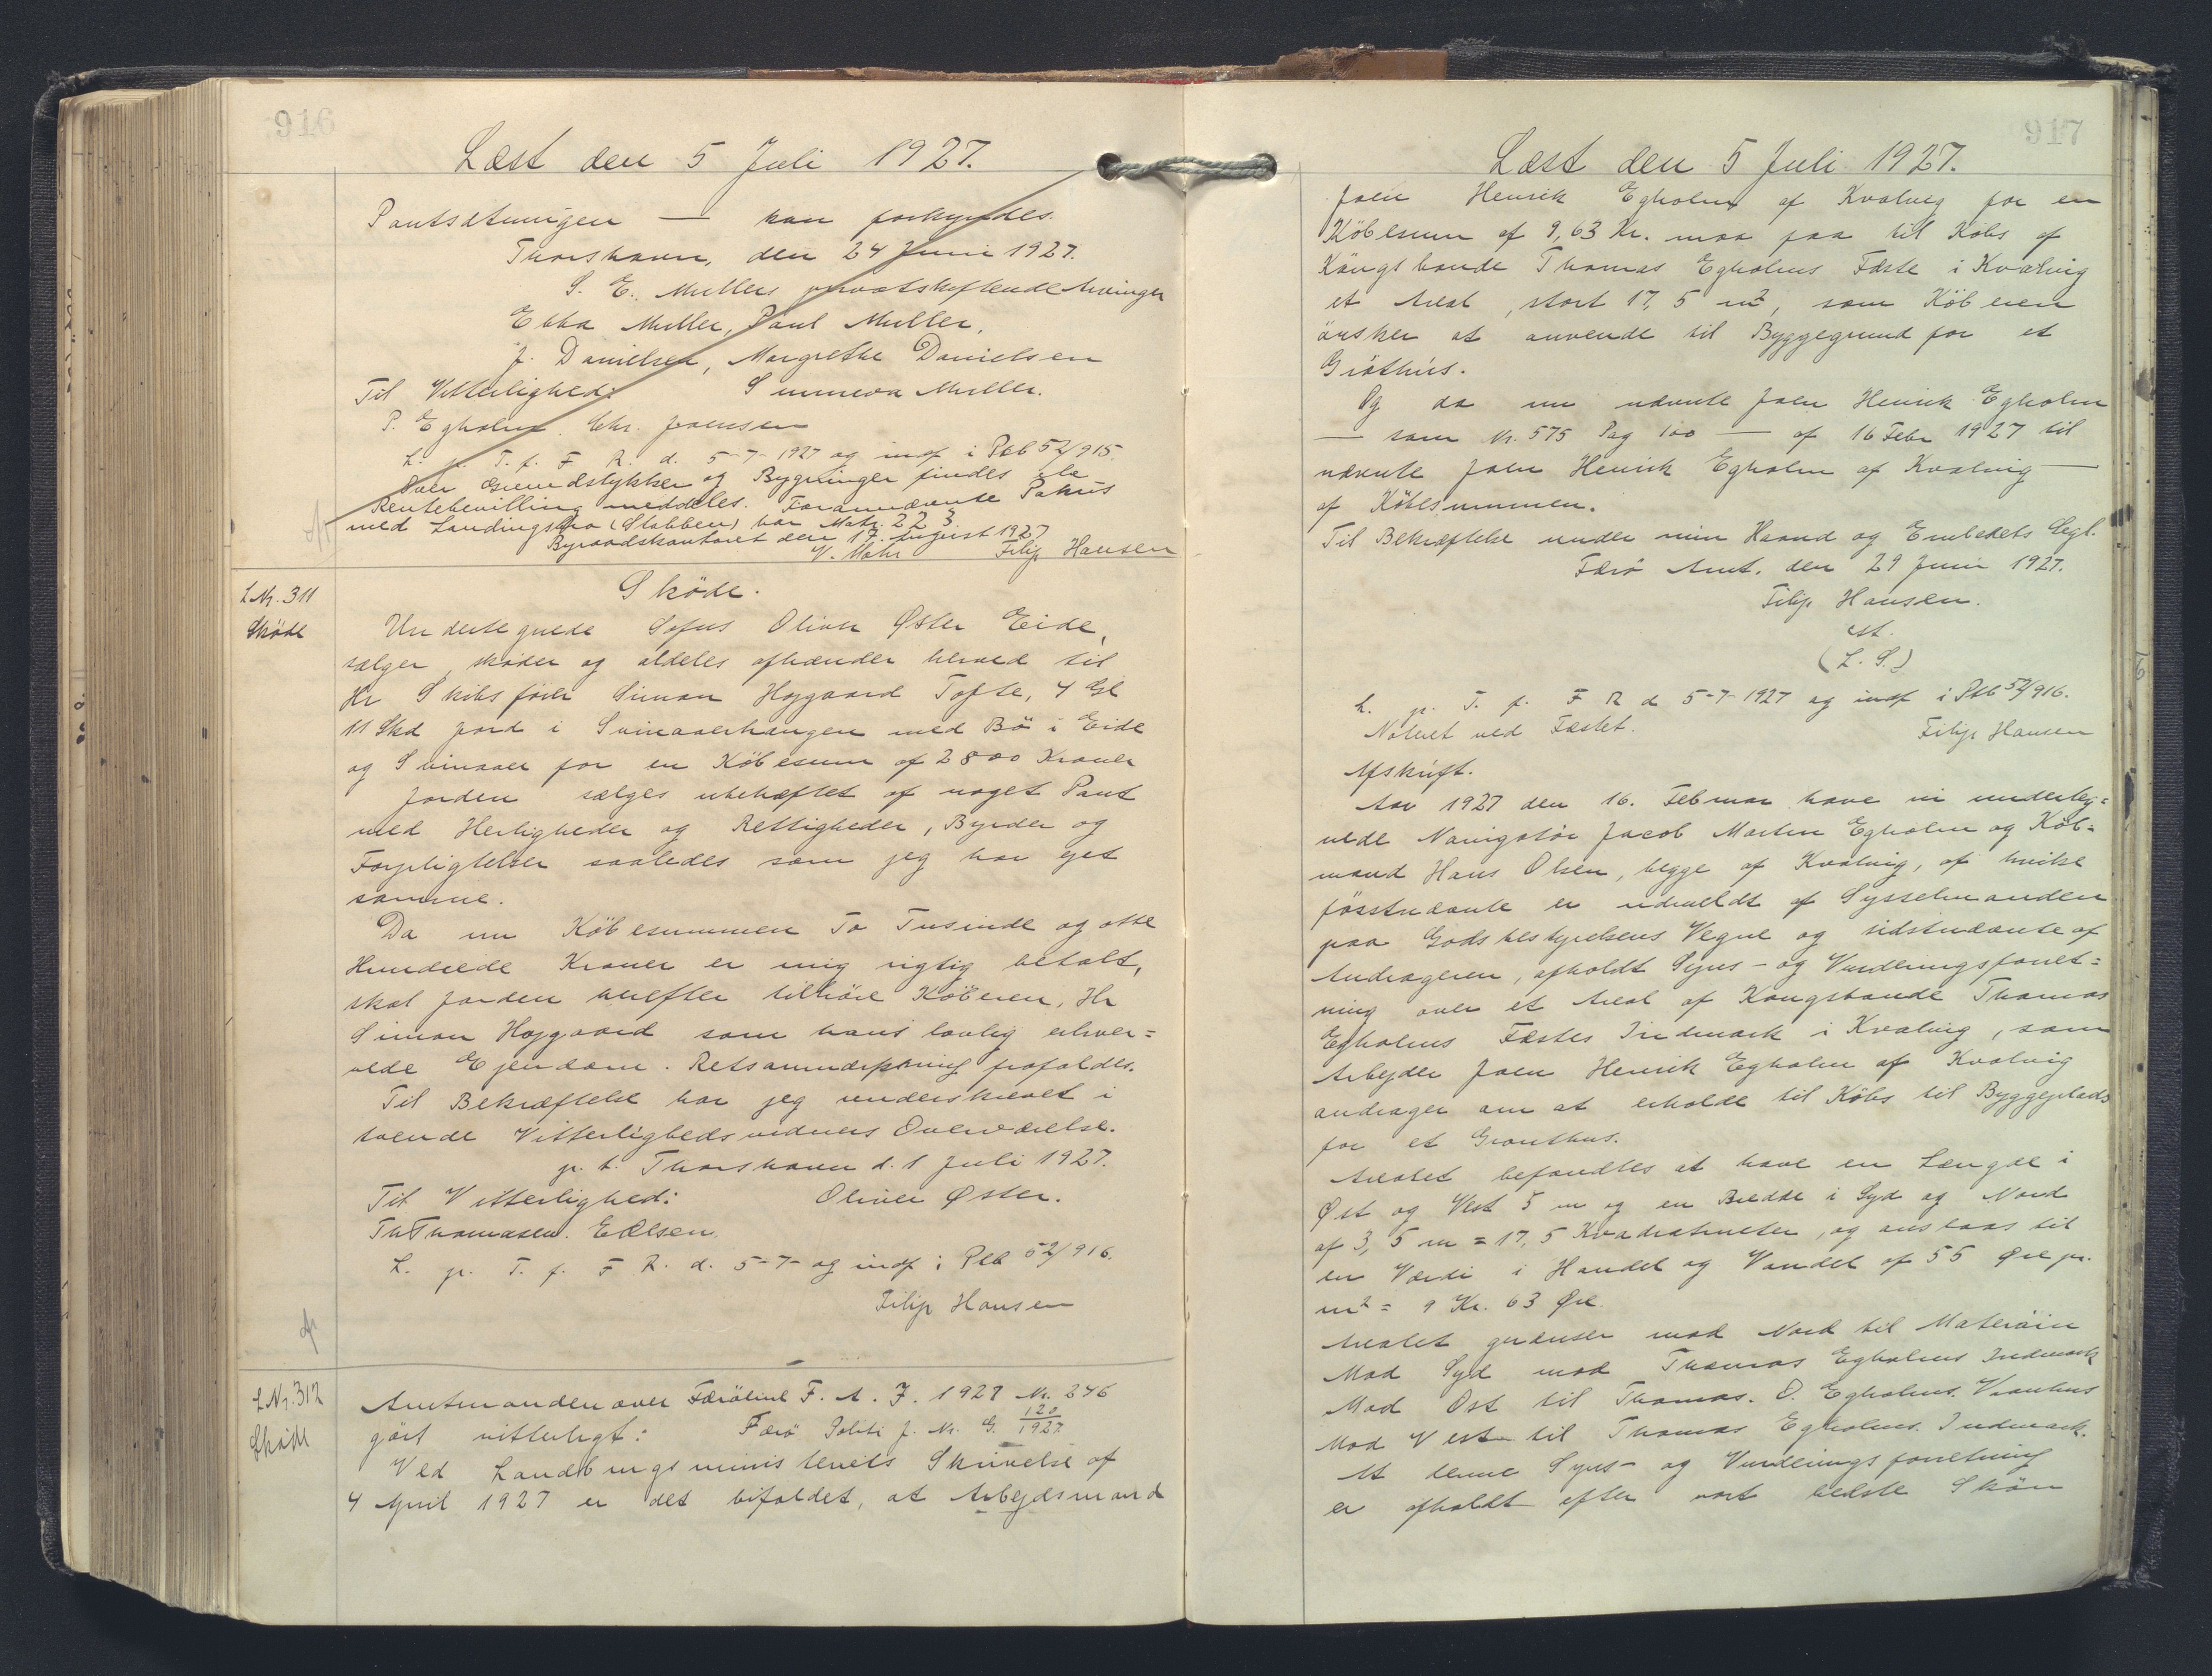 916
Læst den 5 Juli 1927.
Pantsætningen — kan forkyndes.
Thorshavn, den 24 Juni 1927.
S. E. Mullers privatskiftende Arvinger
Ebba Muller, Paul Muller,
J. Danielsen, Margrethe Danielsen
Til Vitterlighed: Sunneva Muller.
P. Egholm. Chr. Joensen
L. p. T. f. F R. d. 5-7-1927 og indf i Pkb 52/915.
Over Grundstykker og Bygninger findes ble
Rentebevilling meddeles. Forannævnte Pakus
med Landingsbro (Stabben) har Matr. 223.
Byraadskontoret den 17. August 1927
V. Mohr Filip Hansen
L Nr. 311
Sköde
Sköde.
Undertegnede Sofus Oliver Øster Eide,
sælger, skøder og aldeles afhænder herved til
Hr Skibsförer Simon Hojgaard Tofte, 4 Gl
11 Skd jord i Svinaaerhaugen med Bö i Eide
og Svinaaer for en Köbesum af 2800 Kroner
Jorden sælges ubehæftet af noget Pant
med Herligheder og Rettigheder, Byrder og
Forpligtelser saaledes som jeg har ejet
samme.
Da nu Köbesummen To Tusinde og otte
Hundrede Kroner er mig rigtig betalt,
skal Jorden herefter tilhöre Köberen, Hr
Simon Hojgaard som hans lovlig erhver=
vede Ejendom. Retsanmærkning frafaldes.
Til Bekræftelse har jeg underskrevet i
tvende Vitterlighedsvidners Overværelse.
p. t. Thorshavn d. 1 Juli 1927.
Til Vitterlighed: Oliver Øster.
Th Thomasen. E Olsen.
L. p. T. f. F R. d. 5-7- og indf i Pkb 52/916.
Filip Hansen
L Nr. 312
Sköde
Amtmanden over Færöerne F. A. J. 1927 Nr. 246
gör vitterligt: Færö Politi J. Nr. G. 120/1927
Ved Landbrugsministeriets Skrivelse af
4 April 1927 er det bifaldet, at Arbejdsmand
917
Læst den 5 Juli 1927.
Joen Henrik Egholm af Kvalvig for en
Köbesum af 9,63 Kr. maa faa til Köbs af
Kongsbonde Thomas Egholms Fæste i Kvalvig
et Areal, stort 17,5 m², som Köberen
önsker at anvende til Byggegrund for et
Gróthús.
Og da nu nævnte Joen Henrik Egholm
— som Nr. 575 Pag 100 — af 16 Febr 1927 til
nævnte Joen Henrik Egholm af Kvalvig —
af Köbesummen.
Til Bekræftelse under min Haand og Embedets Segl.
Færö Amt, den 29 Juni 1927.
Filip Hansen.
cst.
(L. S.)
L. p. T. f. F R d 5-7-1927 og indf i Pkb 52/916.
Noteret ved Fæstet. Filip Hansen
Afskrift.
Aar 1927 den 16. Februar have vi underteg=
nede Navigatör Jacob Martin Egholm og Köb=
mand Hans Olsen, begge af Kvalvig, af hvilke
förstnævnte er udmeldt af Sysselmanden
paa Godsbestyrelsens Vegne og sidstnævnte af
Andrageren, afholdt Syns- og Vurderingsforret=
ning over et Areal af Kongsbonde Thomas
Egholms Fæstes Indmark i Kvalvig, som
Arbejder Joen Henrik Egholm af Kvalvig
andrager om at erholde til Köbs til Byggeplads
for et Grouthus.
Arealet befandtes at have en Længde i
Øst og Vest 5 m og en Bredde i Syd og Nord
af 3,5 m = 17,5 Kvadratmeter, og anslaas til
en Værdi i Handel og Vandel af 55 Øre pr.
m² = 9 Kr. 63 Øre.
Arealet grænser mod Nord til
Mod Syd mod Thomas Egholms Indmark
Mod Öst til Thomas. O. Egholms
Mod Vest til Thomas Egholms Indmark.
At denne Syns- og Vurderingsforretning
er afholdt efter vort bedste Skön